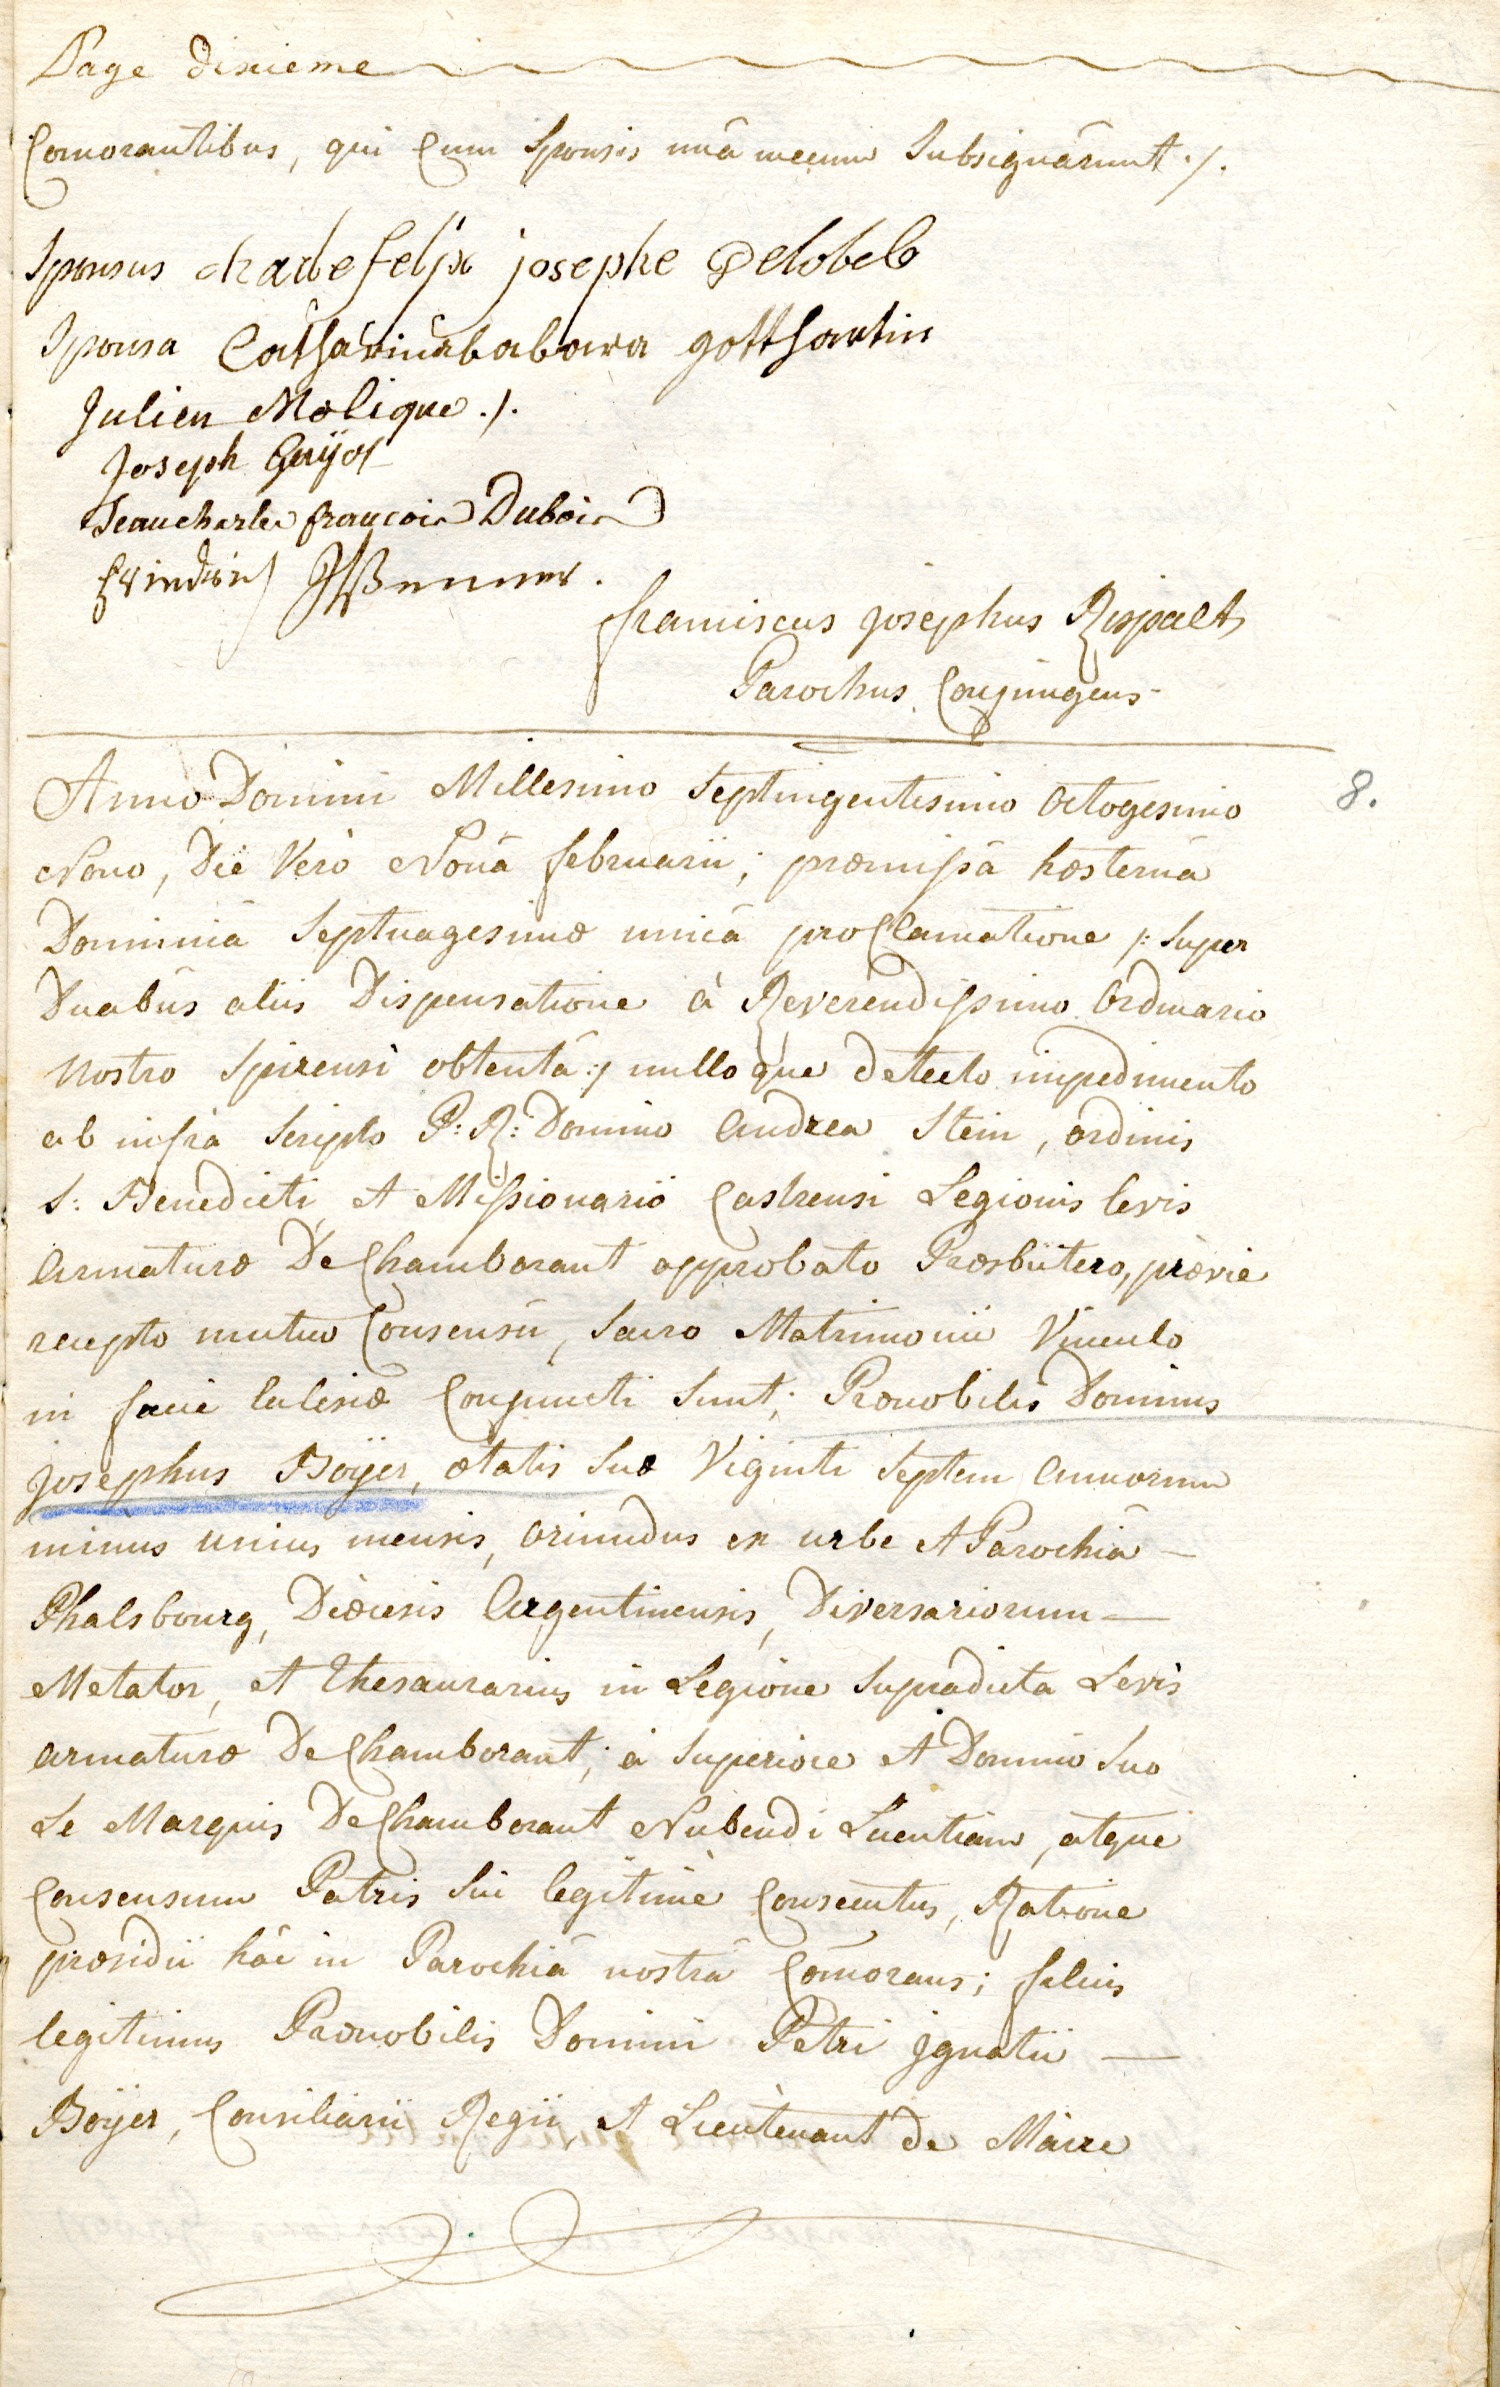 Page dixieme
Comorantibus, qui Cum Sponsis unâ mecum Subsignârunt ./.
Sponsus charle felix josephe Delobel
Sponsa Catharinababara gotthartin
Julien Molique ./.
Joseph Guÿot
Jeancharles francois Dubois
franciscus josephus Rispalt
Parochus Conjungens
Anno Domini Millesimo Septingentesimo Octogesimo
8.
Nono, Die Verò Nonâ februarii; præmissâ hæsternâ
Dominicâ Septuagesimæ unicâ proClamatione /: Super
Duabus aliis Dispensatione à Reverendissimo Ordinario
Nostro Spirensi obtentâ :/ nulloque detecto impedimento
ab infrà Scripto P: R: Domino Andrea Stein, ordinis
S: Benedicti et Missionario Castrensi Legionis levis
Armaturæ De Chamborant approbato Præsbÿtero, prævie
recepto mutuo Consensu, Sacro Matrimonii Vinculo
in facie Eclesiæ Conjuncti Sunt; Prænobilis Dominus
josephus Boÿer, ætatis Suæ Viginti Septem Annorum
minus unius mensis, oriundus ex urbe et Parochiâ —
Phalsbourg, Dioecesis Argentinensis, Diversariorum —
Metator, et Thesaurarius in Legione Supradicta Levis
armaturæ De Chamborant; à Superiore et Domino Suo
Le Marquis De Chamborant Nubendi Licentiam, atque
Consensum Patris Sui legitimè Consecutus, Ratione
præsidii hâc in Parochiâ nostrâ Comorans; filius
legitimus Prænobilis Domini Petri Jgnatii —
Boÿer, Consiliarii Regii et Lieutenant de Maire